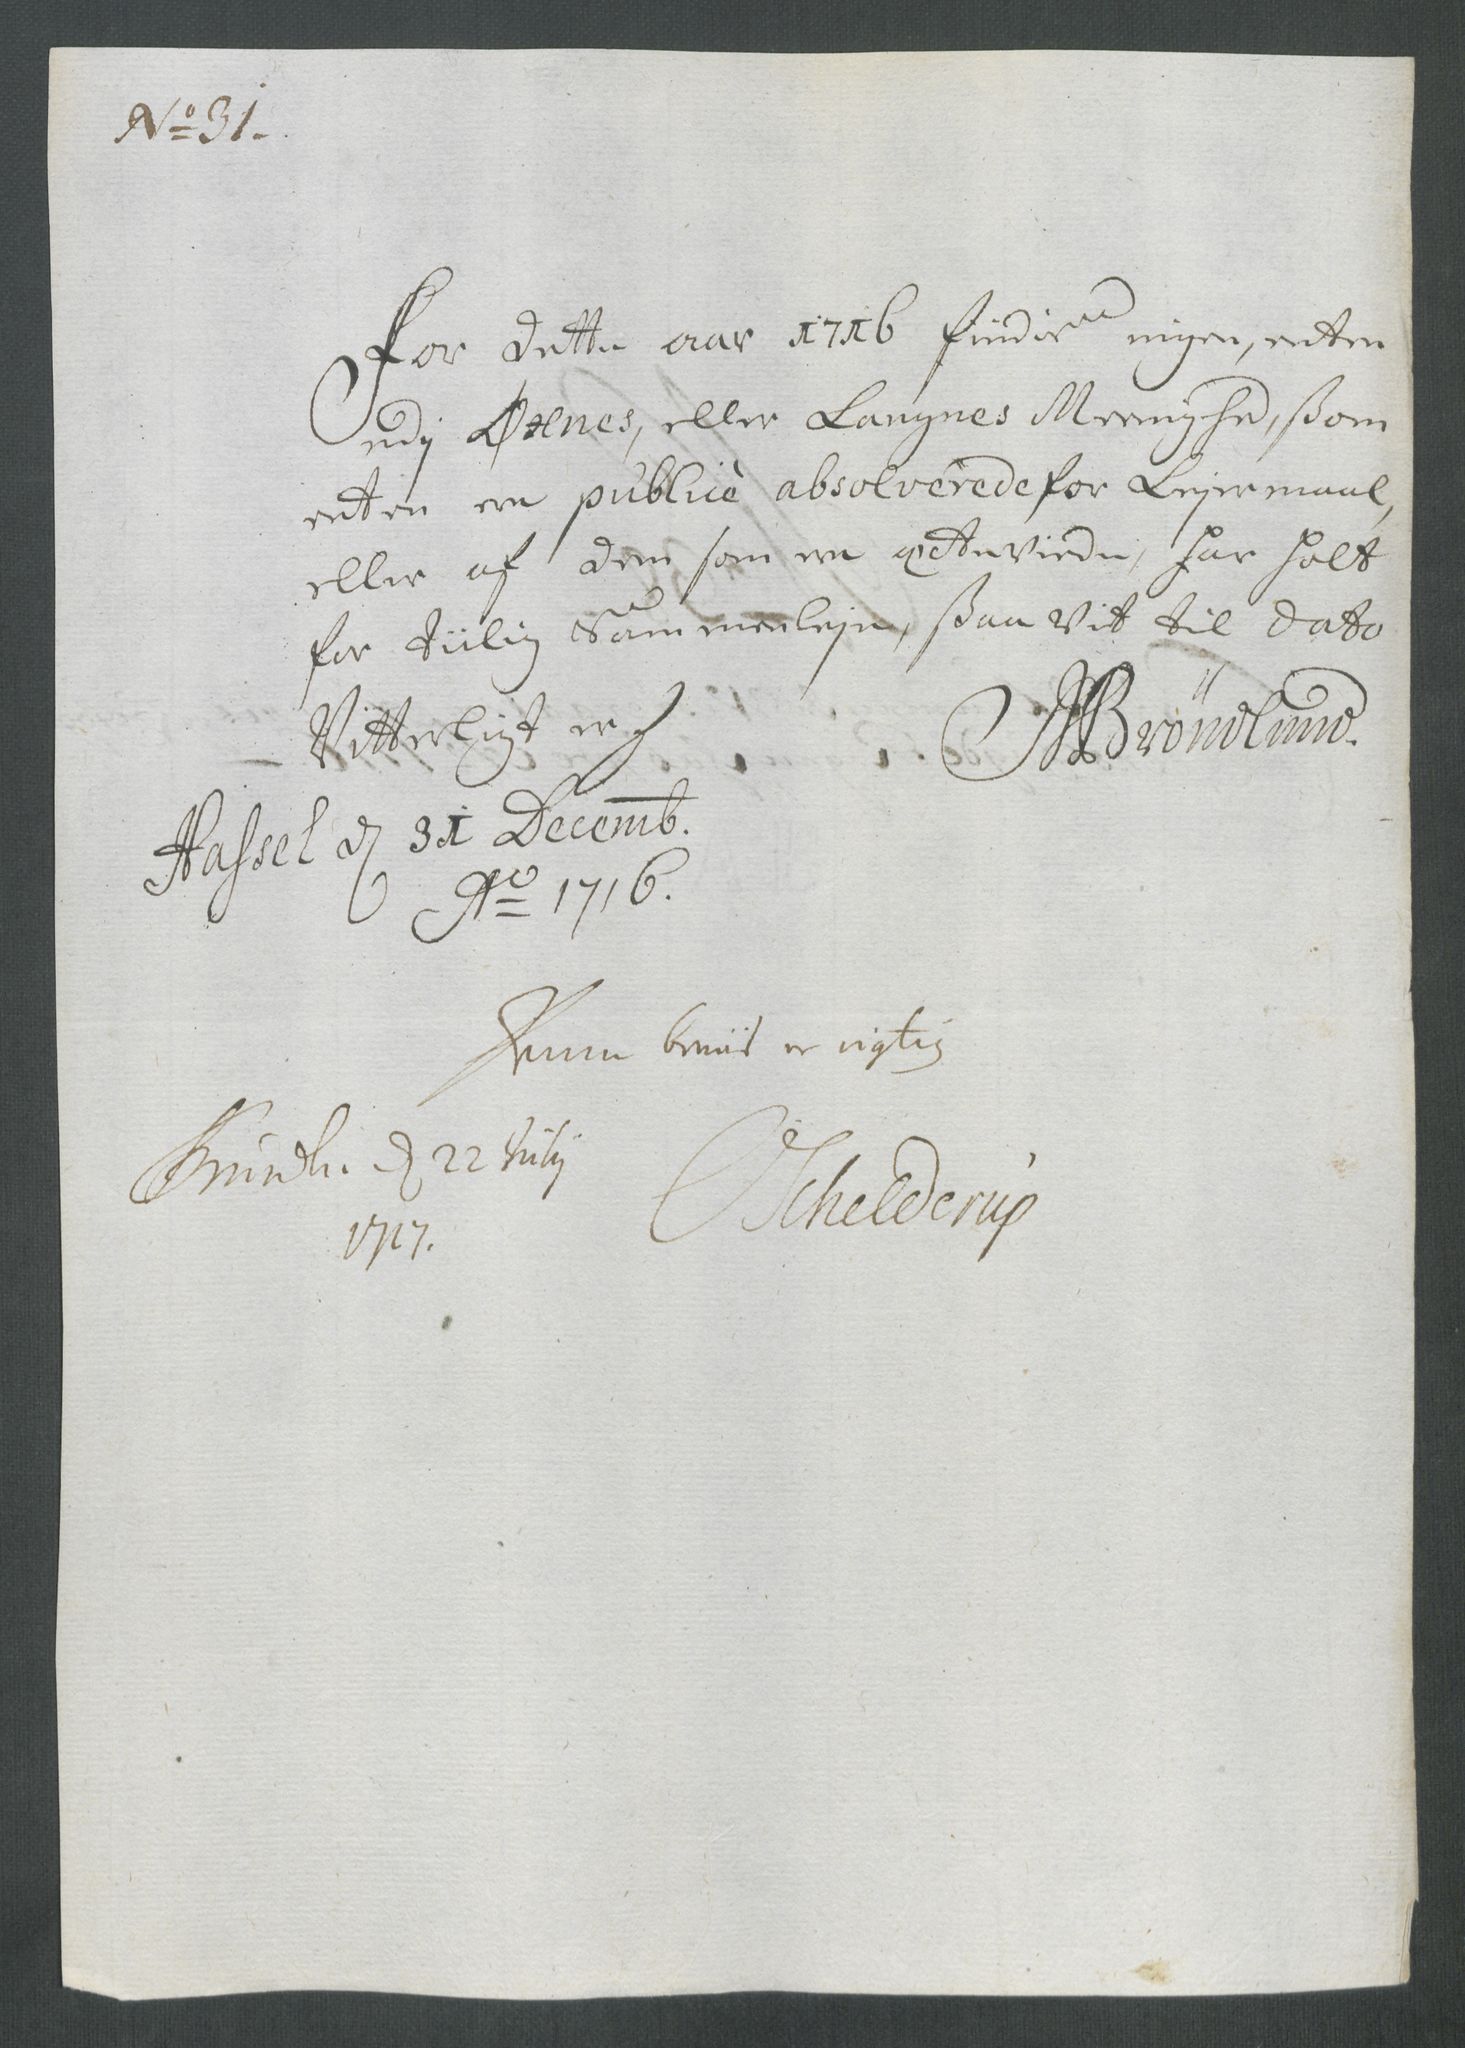 No 31.
For dette aar 1716 findis ingen, enten
udj Øxnes, eller Langnes Meenighed, ßom
enten ere publicè absolverede for Lejermaal,
eller af dem som ere ecteviede, har holt
for tiilig Sammenleje, ßaa vit til dato
Vitterligt er
JHBröndlund.
Hassel d 31 Decemb.
Ao 1716.
Denne beviis er rigtig
d 22 July
1717.
Schelderup